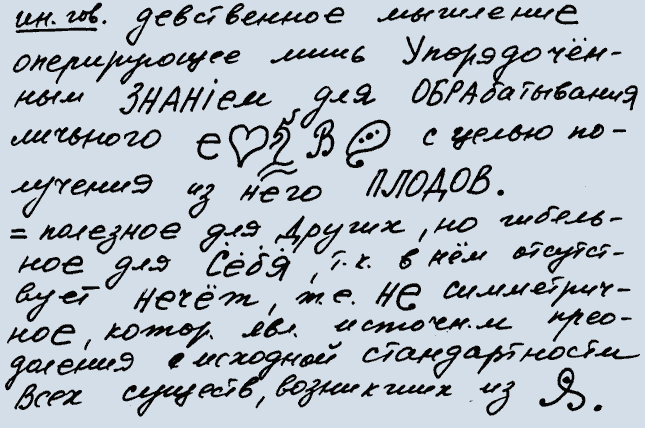 ин. гов. девственное мышление
оперирующее лишь Упорядочён-
ным ЗНАНIем для ОБРАбатывания
личного с целью по-
лучения из него ПЛОДОВ.
= полезное для Других, но гибель-
ное для Сёбя, т.к. в нём отсутст-
вует нечёт, т.е. не симметрич-
ное, котор. явл. источн.м прео-
доления исходной стандартности
Всех существ, возникших из Я.